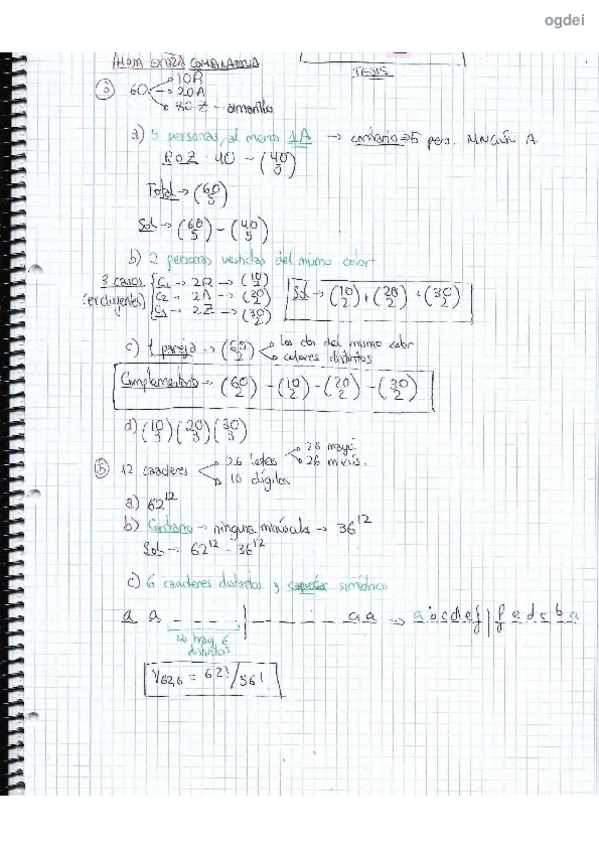 ogdei
HOJA EXTRA COMBINATORIA
TEMIS
a) 60 → 10R
→ 20A
→ 30 Z - amarillo
a) 5 personas, al menos 1A → contrario → 5 pers. NINGÚN A
R o Z : 40 → (40 5)
Total → (60 5)
Sol → (60 5) - (40 5)
b) 2 personas vestidas del mismo color
3 casos (excluyentes)
C1 → 2R → (10 2)
C2 → 2A → (20 2)
C3 → 2Z → (30 2)
Sol → (10 2) + (20 2) + (30 2)
c) 1 pareja → (60 2) → los dos del mismo color
→ colores distintos
Complementario → (60 2) - (10 2) - (20 2) - (30 2)
d) (10 3) (20 3) (30 3)
b) 12 caracteres → 26 letras → 26 mayú.
→ 26 minús.
→ 10 dígitos
a) 62^12
b) Contrario → ninguna minúscula → 36^12
Sol → 62^12 - 36^12
c) 6 caracteres distintos y simétrico
a a _ _ _ _ | _ _ _ _ a a → a b c d e f | f e d c b a
no hay 6 distintos
V62,6 = 62!/56!